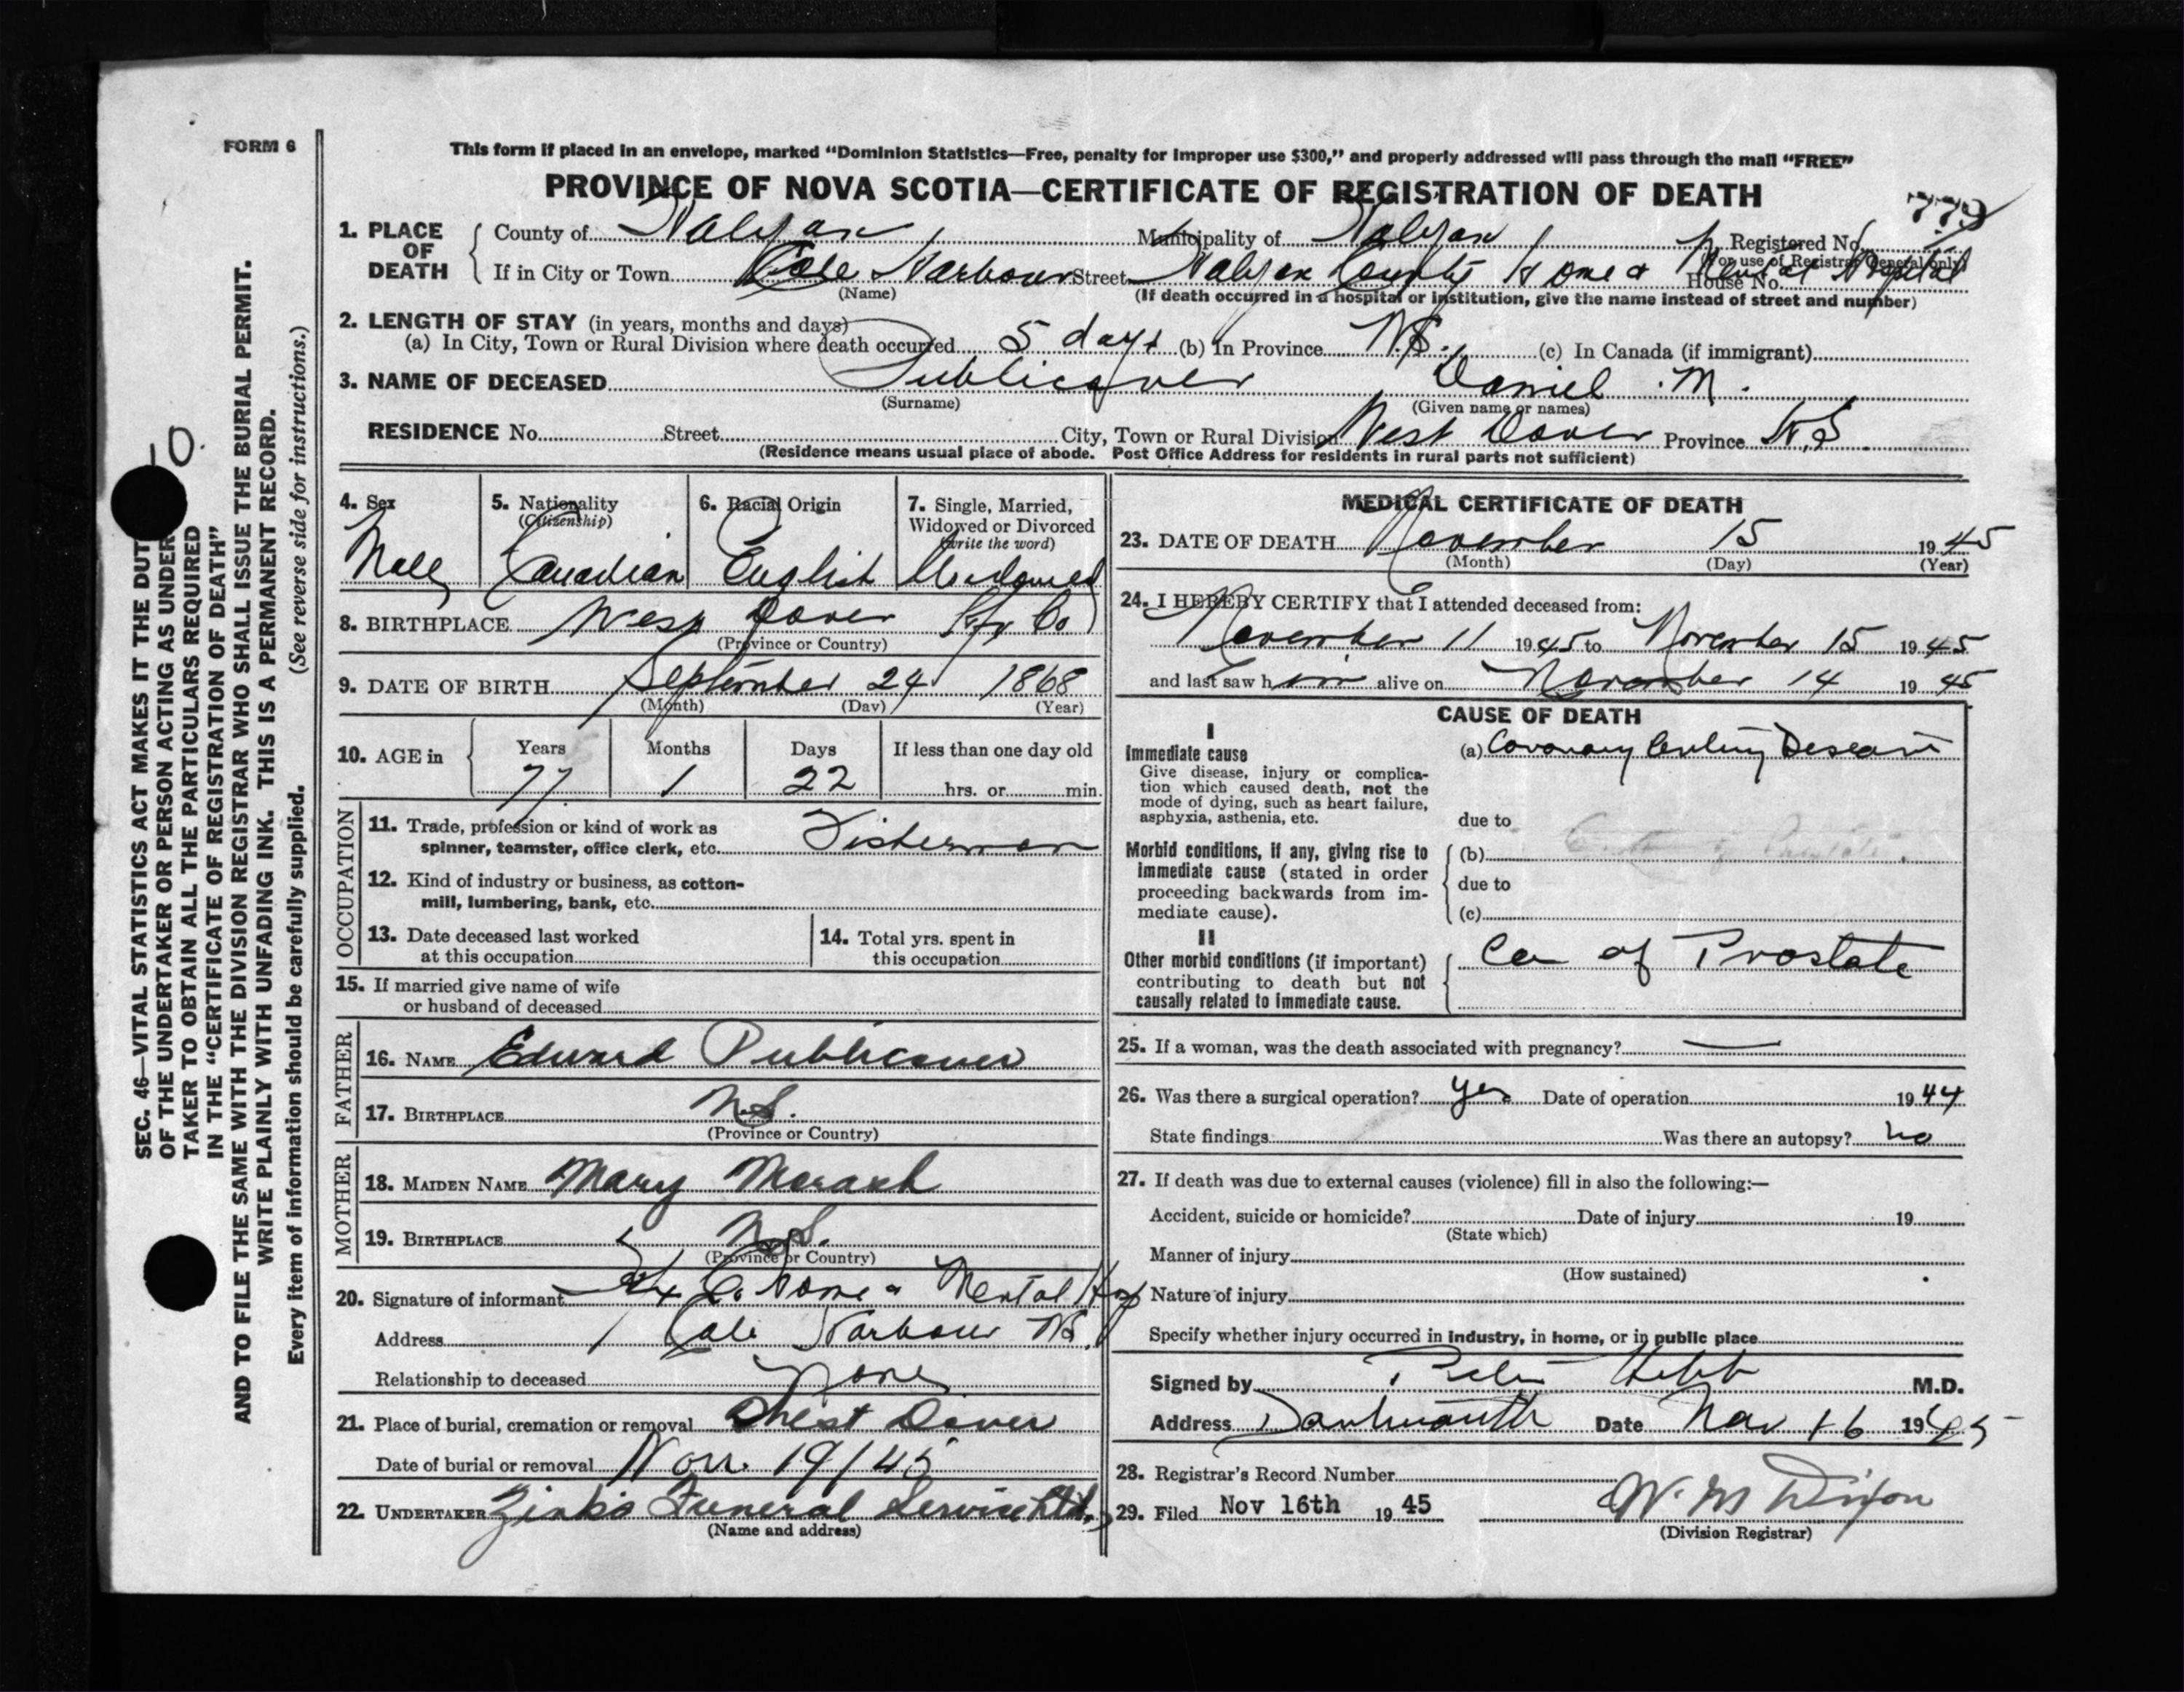 FORM 6
This form if placed in an envelope, marked “Dominion Statistics—Free, penalty for improper use $300,” and properly addressed will pass through the mail “FREE”
PROVINCE OF NOVA SCOTIA—CERTIFICATE OF REGISTRATION OF DEATH
779
1. PLACE OF DEATH
County of Halifax Municipality of Halifax Registered No.
(For use of Registrar General only)
If in City or Town Cole Harbour Street Halifax County Home & Mental Hospital House No.
(Name) (If death occurred in a hospital or institution, give the name instead of street and number)
2. LENGTH OF STAY (in years, months and days)
(a) In City, Town or Rural Division where death occurred 5 days (b) In Province N.S. (c) In Canada (if immigrant)
3. NAME OF DECEASED Publicover Daniel M.
(Surname) (Given name or names)
RESIDENCE No. Street City, Town or Rural Division West Dover Province N.S.
(Residence means usual place of abode. Post Office Address for residents in rural parts not sufficient)
4. Sex
Male
5. Nationality
(Citizenship)
Canadian
6. Racial Origin
English
7. Single, Married,
Widowed or Divorced
(write the word)
Widowed
8. BIRTHPLACE West Dover Hfx Co
(Province or Country)
9. DATE OF BIRTH September 24 1868
(Month) (Day) (Year)
10. AGE in Years Months Days If less than one day old
77 1 22 hrs. or min.
OCCUPATION
11. Trade, profession or kind of work as
spinner, teamster, office clerk, etc. Fisherman
12. Kind of industry or business, as cotton-
mill, lumbering, bank, etc.
13. Date deceased last worked
at this occupation
14. Total yrs. spent in
this occupation
15. If married give name of wife
or husband of deceased
FATHER
16. NAME Edward Publicover
17. BIRTHPLACE N.S.
(Province or Country)
MOTHER
18. MAIDEN NAME Mary Morash
19. BIRTHPLACE N.S.
(Province or Country)
20. Signature of informant Hfx Co Home & Mental Hosp
Address Cole Harbour NS.
Relationship to deceased None
21. Place of burial, cremation or removal West Dover
Date of burial or removal Nov. 19/45
22. UNDERTAKER Zink's Funeral Service Ltd.
(Name and address)
MEDICAL CERTIFICATE OF DEATH
23. DATE OF DEATH November 15 1945
(Month) (Day) (Year)
24. I HEREBY CERTIFY that I attended deceased from:
November 11 1945 to November 15 1945
and last saw him alive on November 14 1945
CAUSE OF DEATH
I
Immediate cause
Give disease, injury or complica-
tion which caused death, not the
mode of dying, such as heart failure,
asphyxia, asthenia, etc.
(a) Coronary
due to
Morbid conditions, if any, giving rise to
immediate cause (stated in order
proceeding backwards from im-
mediate cause).
(b)
due to
(c)
II
Other morbid conditions (if important)
contributing to death but not
causally related to immediate cause.
Ca of Prostate
25. If a woman, was the death associated with pregnancy? —
26. Was there a surgical operation? yes Date of operation 1944
State findings Was there an autopsy? no
27. If death was due to external causes (violence) fill in also the following:—
Accident, suicide or homicide? Date of injury 19
(State which)
Manner of injury
(How sustained)
Nature of injury
Specify whether injury occurred in industry, in home, or in public place
Signed by Peter Hebb M.D.
Address Dartmouth Date Nov 16 1945
28. Registrar's Record Number
29. Filed Nov 16th 1945 W. M Dixon
(Division Registrar)
10.
SEC. 46—VITAL STATISTICS ACT MAKES IT THE DUT
OF THE UNDERTAKER OR PERSON ACTING AS UNDER-
TAKER TO OBTAIN ALL THE PARTICULARS REQUIRED
IN THE “CERTIFICATE OF REGISTRATION OF DEATH”
AND TO FILE THE SAME WITH THE DIVISION REGISTRAR WHO SHALL ISSUE THE BURIAL PERMIT.
WRITE PLAINLY WITH UNFADING INK. THIS IS A PERMANENT RECORD.
Every item of information should be carefully supplied. (See reverse side for instructions.)